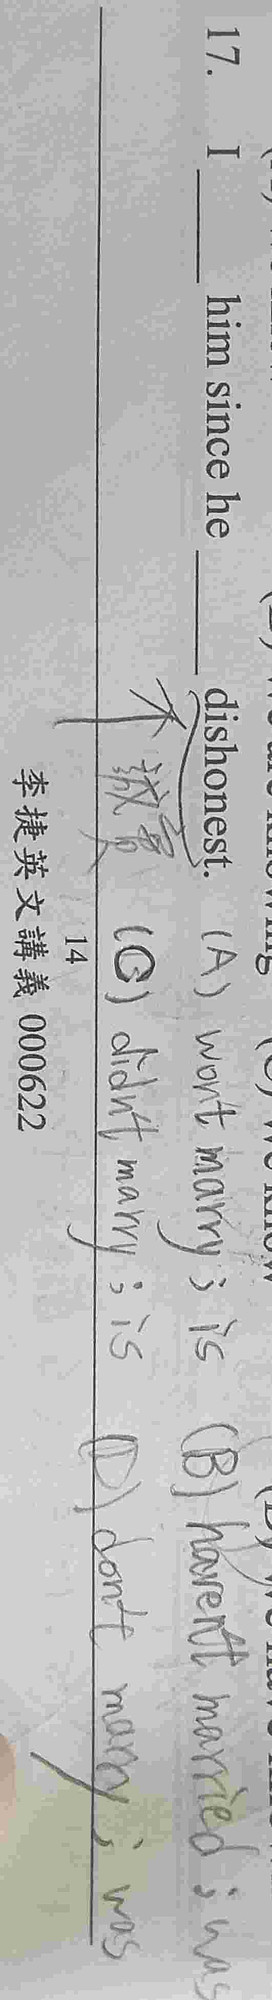 17. I ______ him since he ______ dishonest. (A) won't marry; is (B) haven't married; was
不誠實 (C) didn't marry; is (D) don't marry; was
14
李捷英文講義 000622